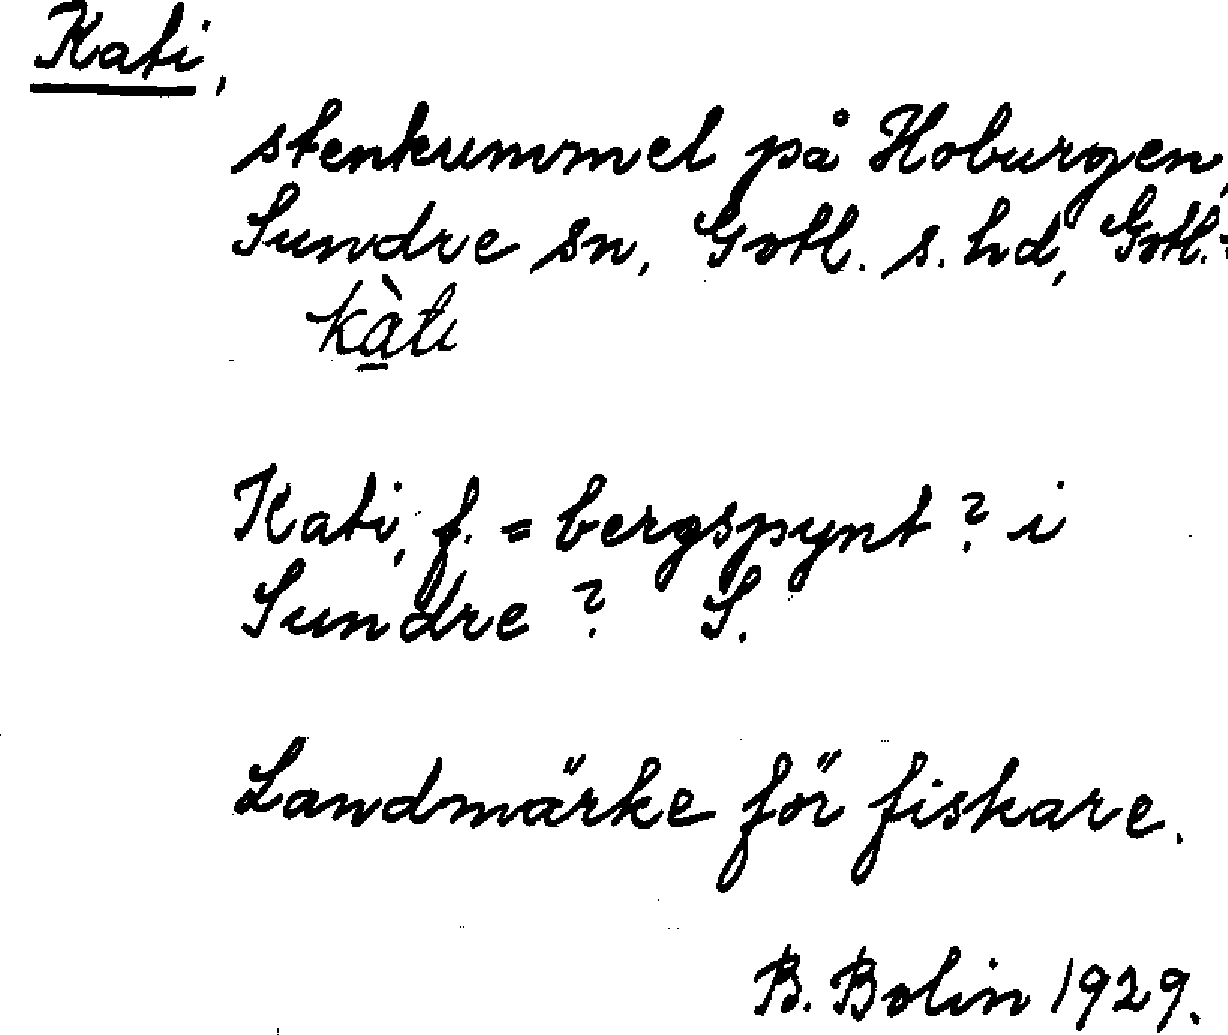 Kati,
stenkummel på Hoburgen,
Sundre sn, Gotl. s. hd, Gotl.
kàti
Kati, f. = bergspynt? i
Sundre? S.
Landmärke för fiskare.
B. Bolin 1929.